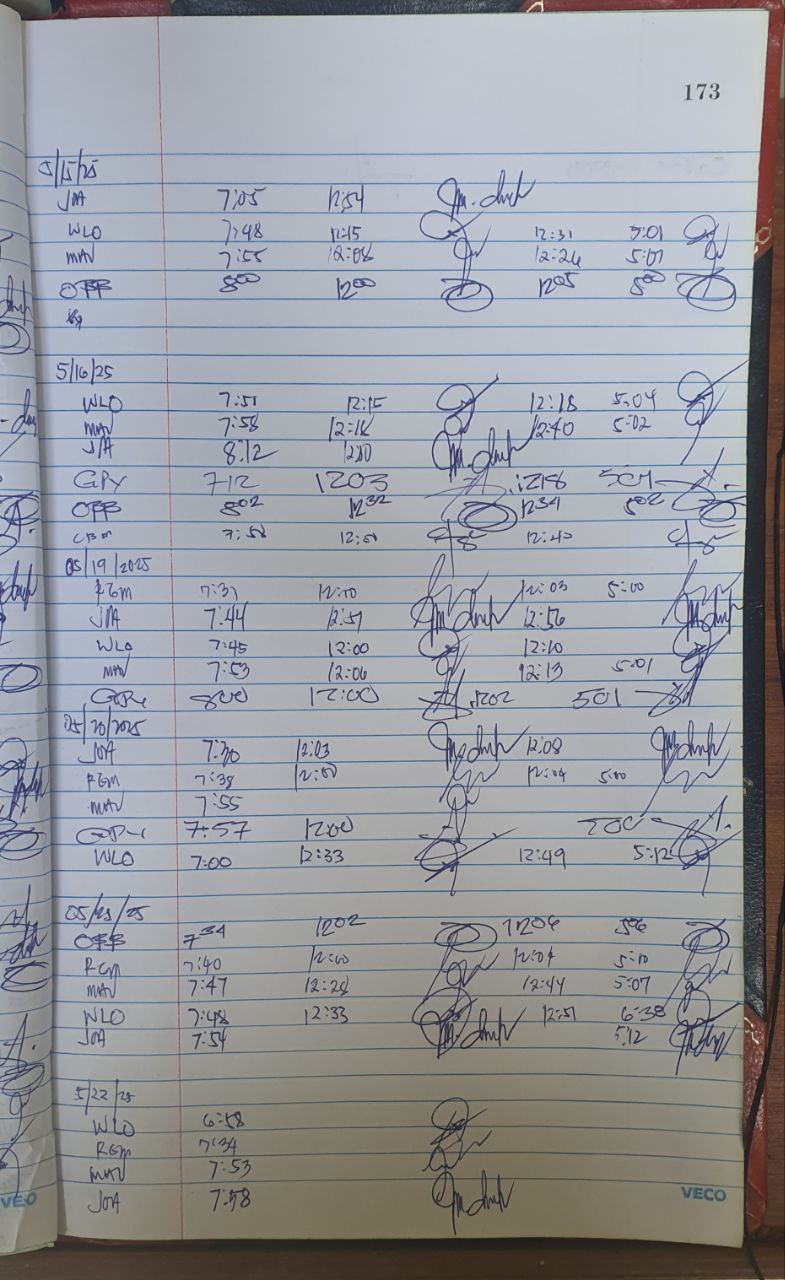 173
5/15/25
JOA 7:05 12:54
WLO 7:48 12:15 12:31 5:01
MAV 7:55 12:08 12:26 5:01
OFB 8⁰⁰ 12⁰⁰ 12⁰⁵ 5⁰⁰
5/16/25
WLO 7:51 12:15 12:18 5:04
MAV 7:58 12:18 12:40 5:02
JOA 8:12
GPY 712 1203 1218 501
OFB 8⁰² 12³² 12³⁴ 5⁰²
CBM 7:58 12:40
05/19/2025
RGM 7:37 12:03 5:00
JOA 7:44 12:51 12:56
WLO 7:45 12:00 12:10
MAV 7:53 12:06 12:13 5:01
GPY 800 12:00 1202 501
05/20/2025
JOA 7:30 12:03 12:08
RGM 7:38 12:00 12:04 5:00
MAV 7:55
GPY 7:57 1200
WLO 7:00 12:33 12:49 5:12
05/21/25
OFB 7³⁴ 1202 1206
RGM 7:40 12:00 12:04 5:10
MAV 7:47 12:28 12:44 5:07
WLO 7:48 12:33 12:51 6:38
JOA 7:54 5:12
5/22/25
WLO 6:58
RGM 7:34
MAV 7:53
JOA 7:58
VECO